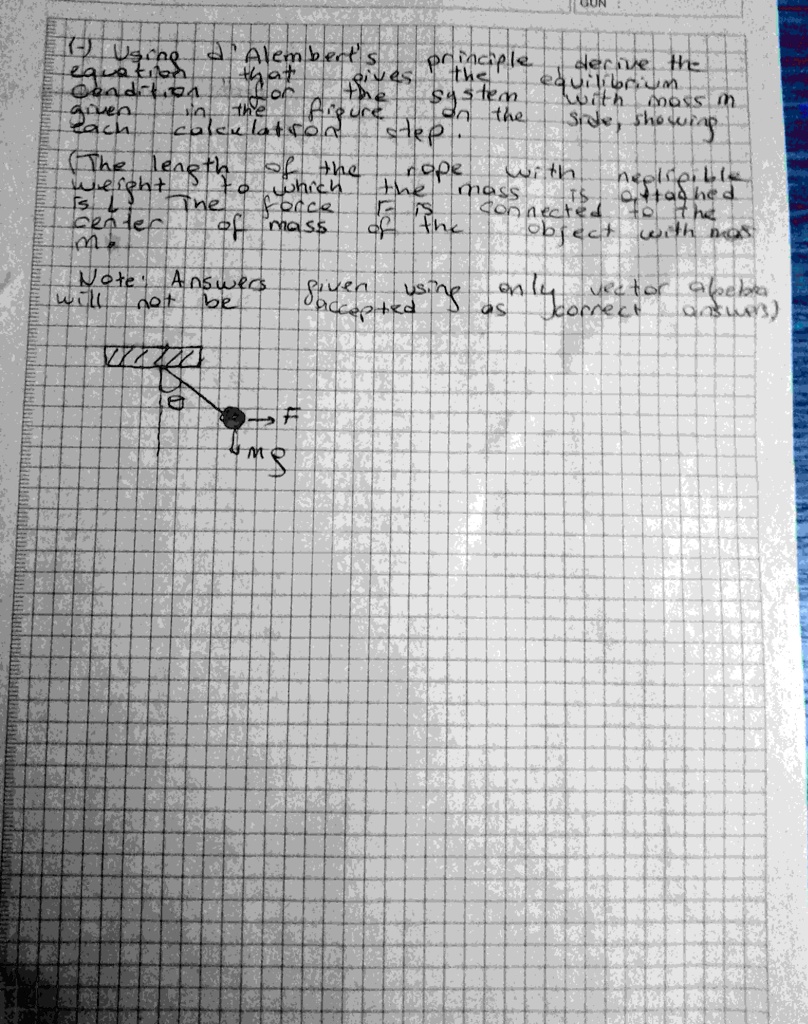 GUN :
(-) Using d'Alembert's principle derive the
equation that gives the equilibrium
condition for the system with mass m
given in the figure on the side, showing
each calculation step.
(The length of the rope with negligible
weight to which the mass is attached
is L. The force F is connected to the
center of mass of the object with mass
m.
Note: Answers given using only vector algebra
will not be accepted as correct answers)
θ
F
mg